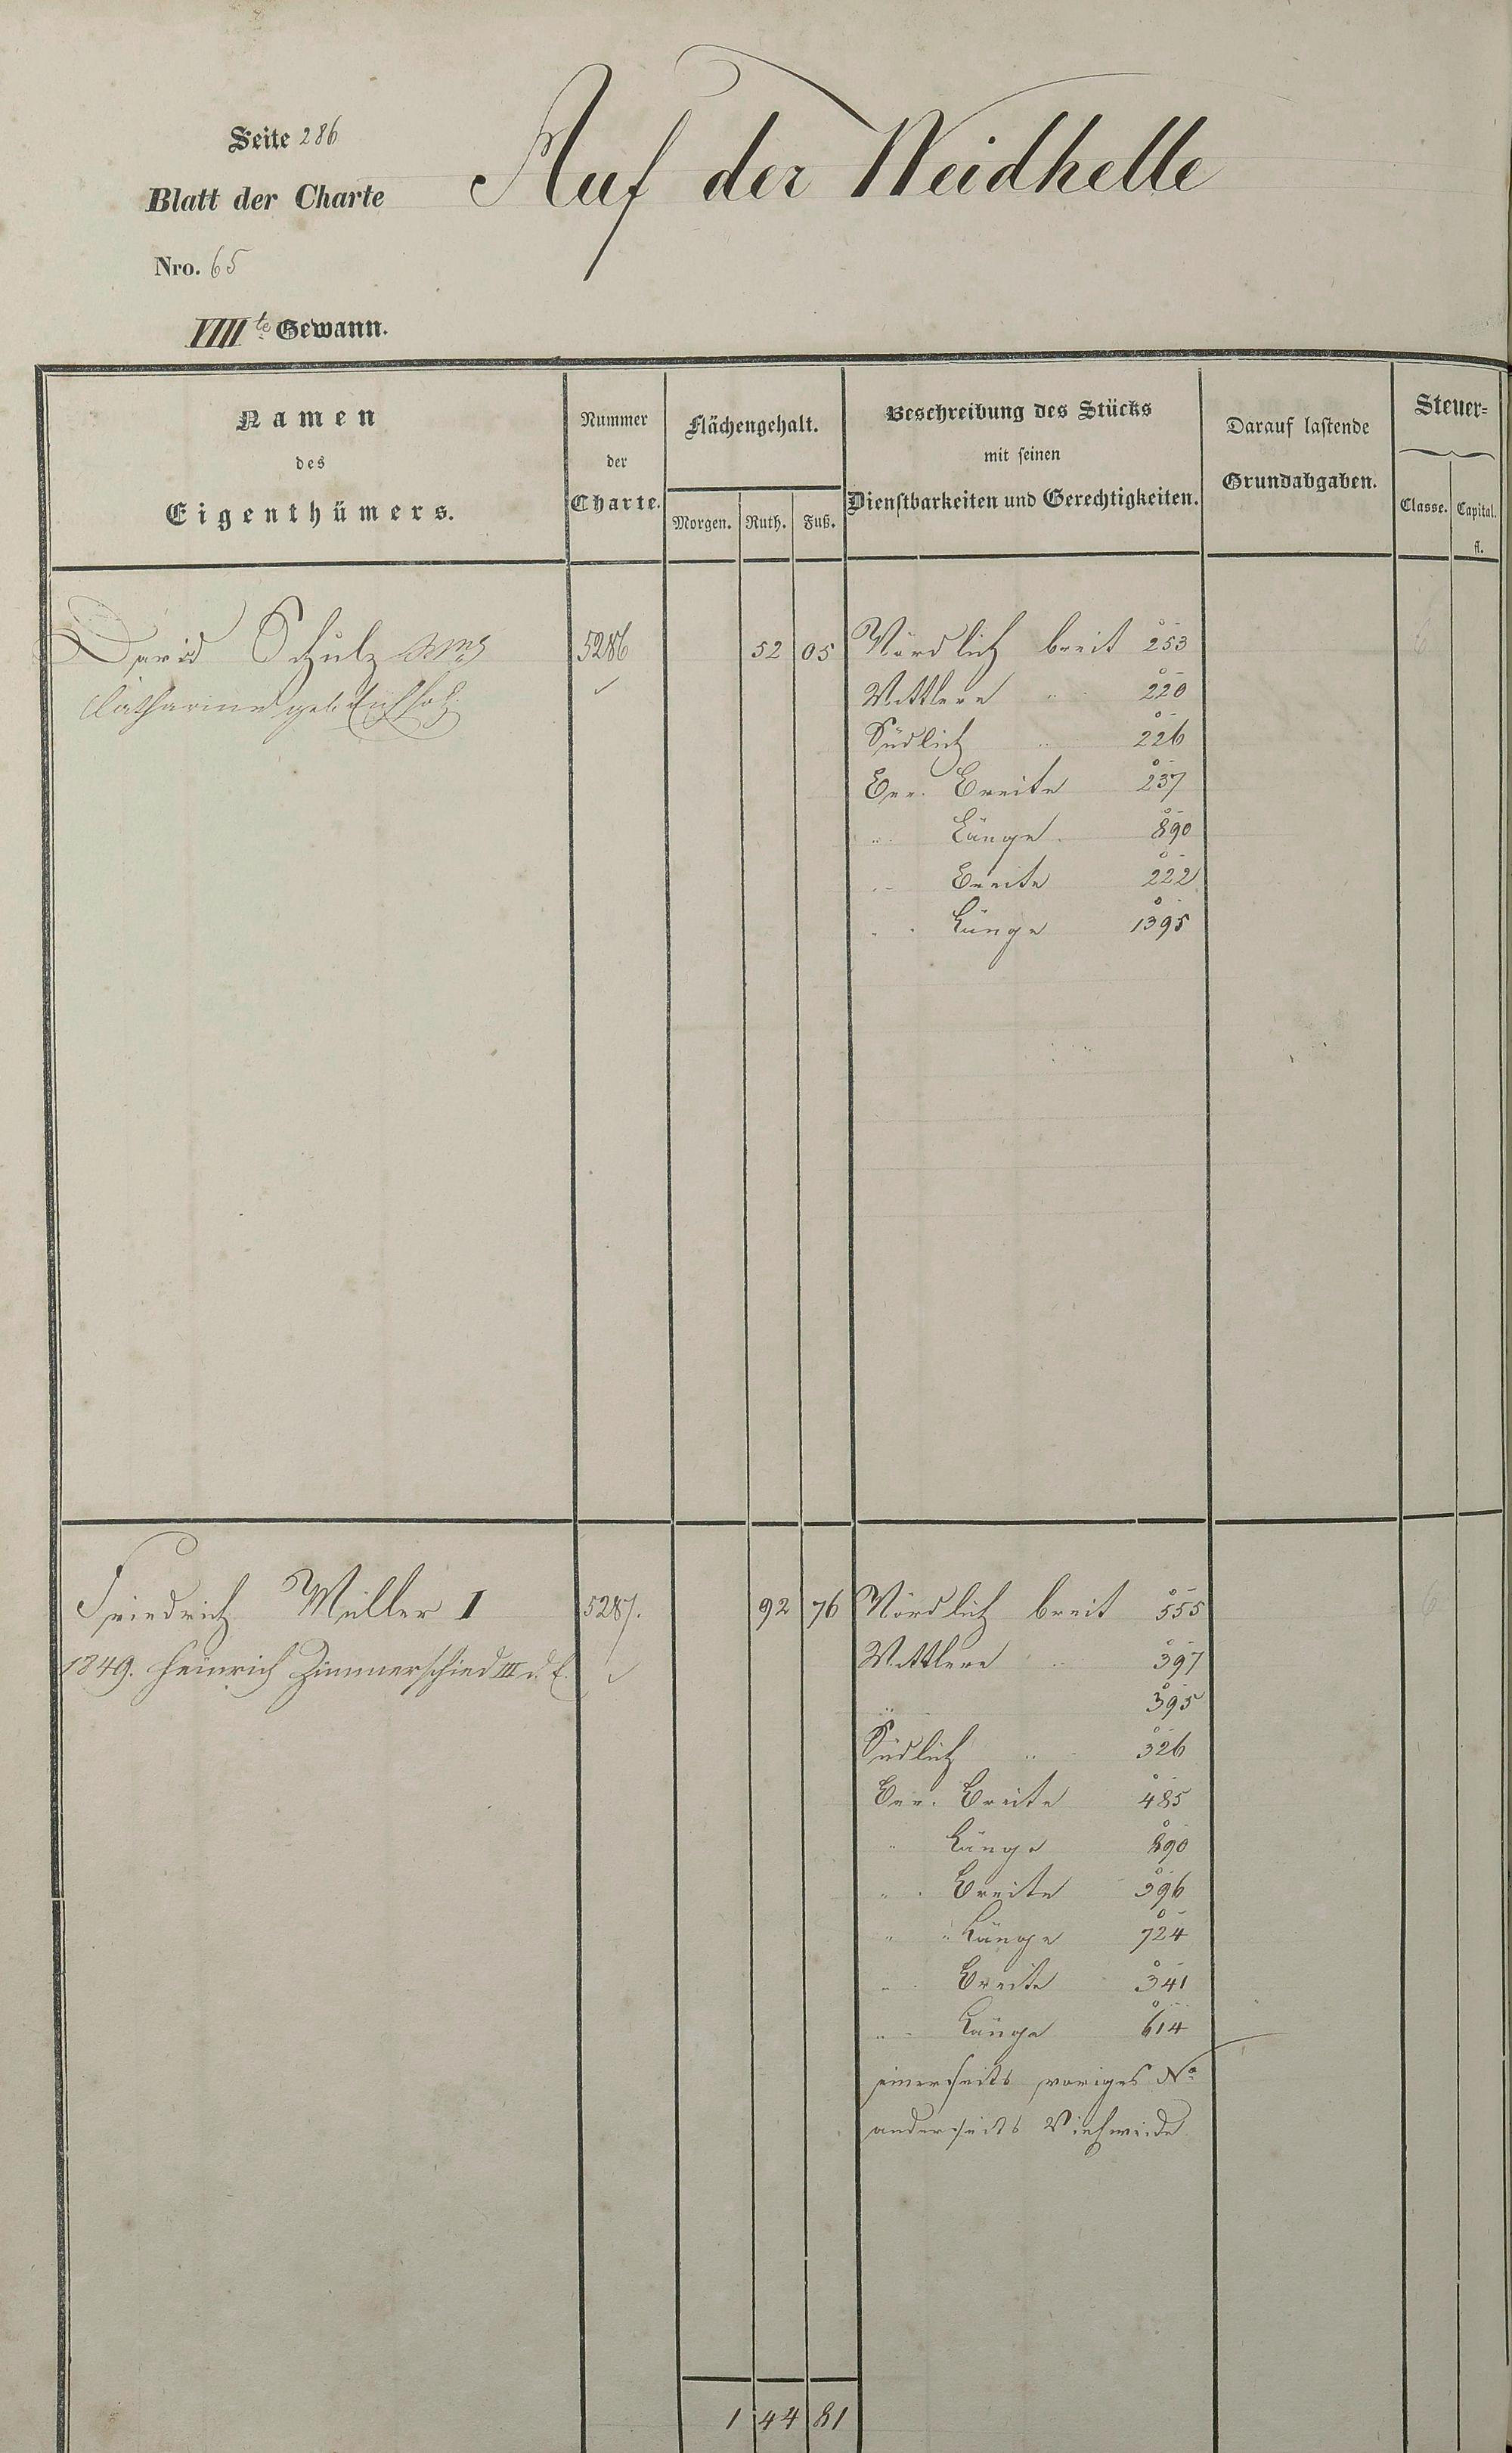 Seite 286
Auf der Weidhelle
Blatt der Charte
Nro. 65
VIIIIte Gewann.
Namen
des
Eigenthümers.
Nummer
der
Charte.
Flächengehalt.
Morgen. Ruth. Fuß.
Beschreibung des Stücks
mit seinen
Dienstbarkeiten und Gerechtigkeiten.
Darauf lastende
Grundabgaben.
Steuer=
Classe. Capital.
fl.
David Schulz 5286 52 05 Nördlich breit 253
Catharine geb. Mittlere " 220
Südlich " 226
Ver. Breite 237
" Länge 890
" Breite 222
" Länge 1395
Friedrich Müller I 5287. 92 76 Nördlich breit 555
1849. Heinrich Zimmerschied III Mittlere " 397
" 395
Südlich " 326
Ver. Breite 485
" Länge 890
" Breite 396
" Länge 724
" Breite 341
" Länge 614
einerseits voriges No
anderseits Viehweide
1 44 81